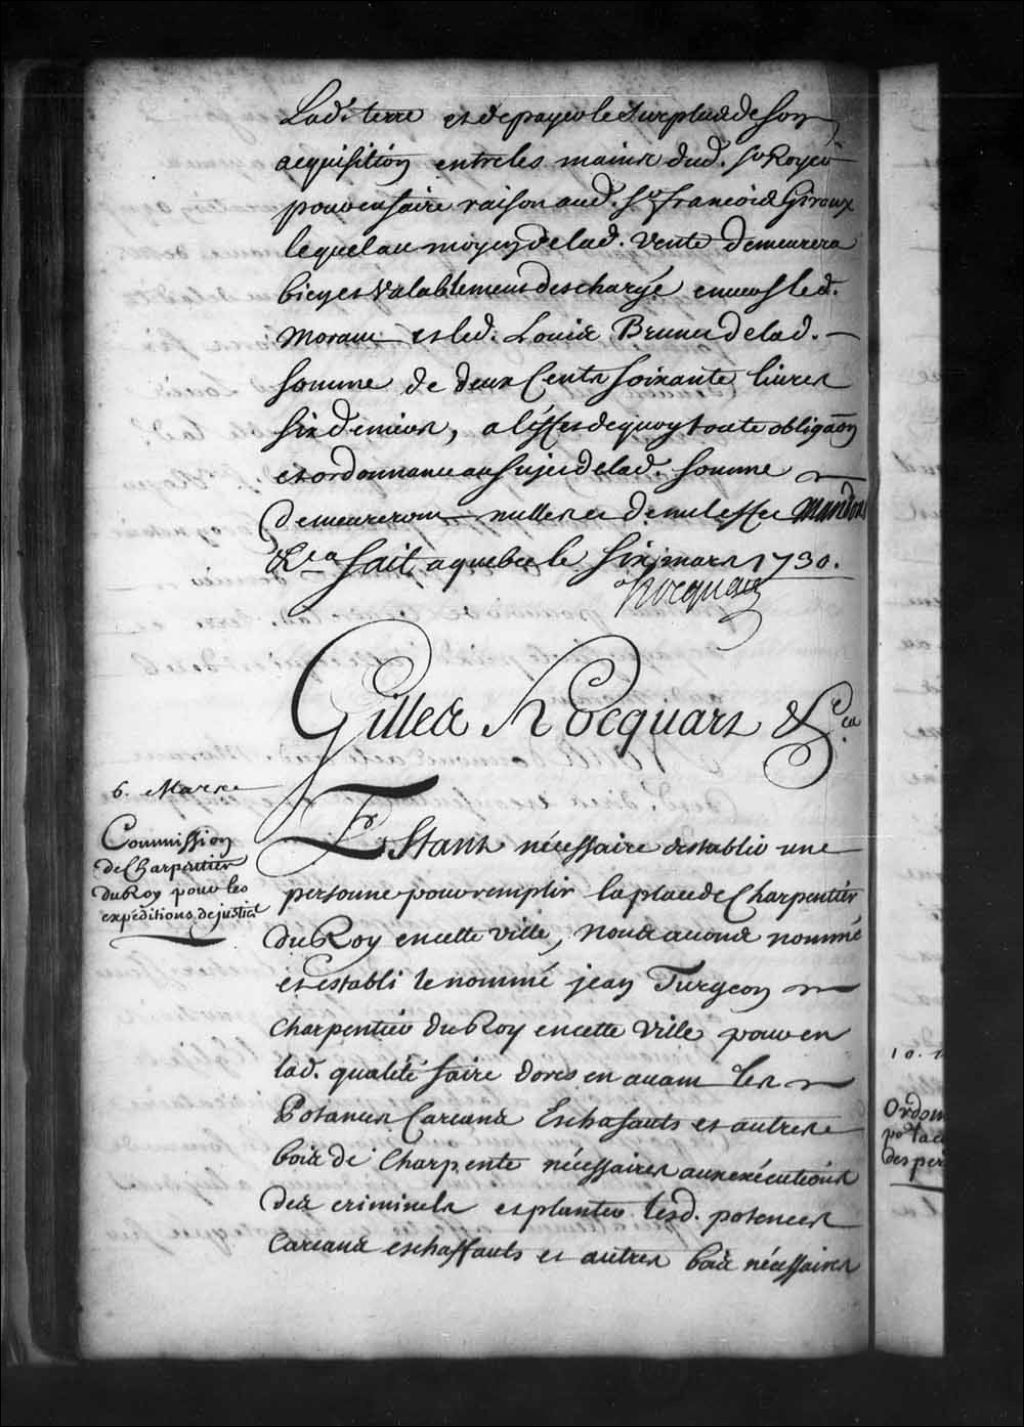 Lad. terre et de payer le surplus de son
acquisition entre les mains dud. Sr Royer
pour en faire raison aud. Sr francois Giroux
lequel au moyen de lad. vente demeurera
bien et valablement deschargé envers led.
Morant et led. Louis Brunet de lad.
somme de deux Cents soixante livres
six deniers, a l'effet de quoy toute obligaōn
et ordonnance au sujet de lad. somme
Demeureront nulles et de nul effet Mandons
&ca fait a quebec le six mars 1730.
hocquart
Gilles Hocquart &Ca
6. Mars
Commission
de Charpentier
du Roy pour les
expéditions de justice
Estant nécessaire d'establir une
personne pour remplir la place de Charpentier
du Roy en cette ville, nous avons nommé
et establi le nommé jean Turgeon
charpentier du Roy en cette ville pour en
lad. qualité faire dores en avant les
Potances Carcans Eschafauts et autres
bois de charpente nécessaires aux exécutions
des criminels et planter lesd. potences
Carcans eschaffauts et autres bois nécessaires
10.
Ordon
po la
des per